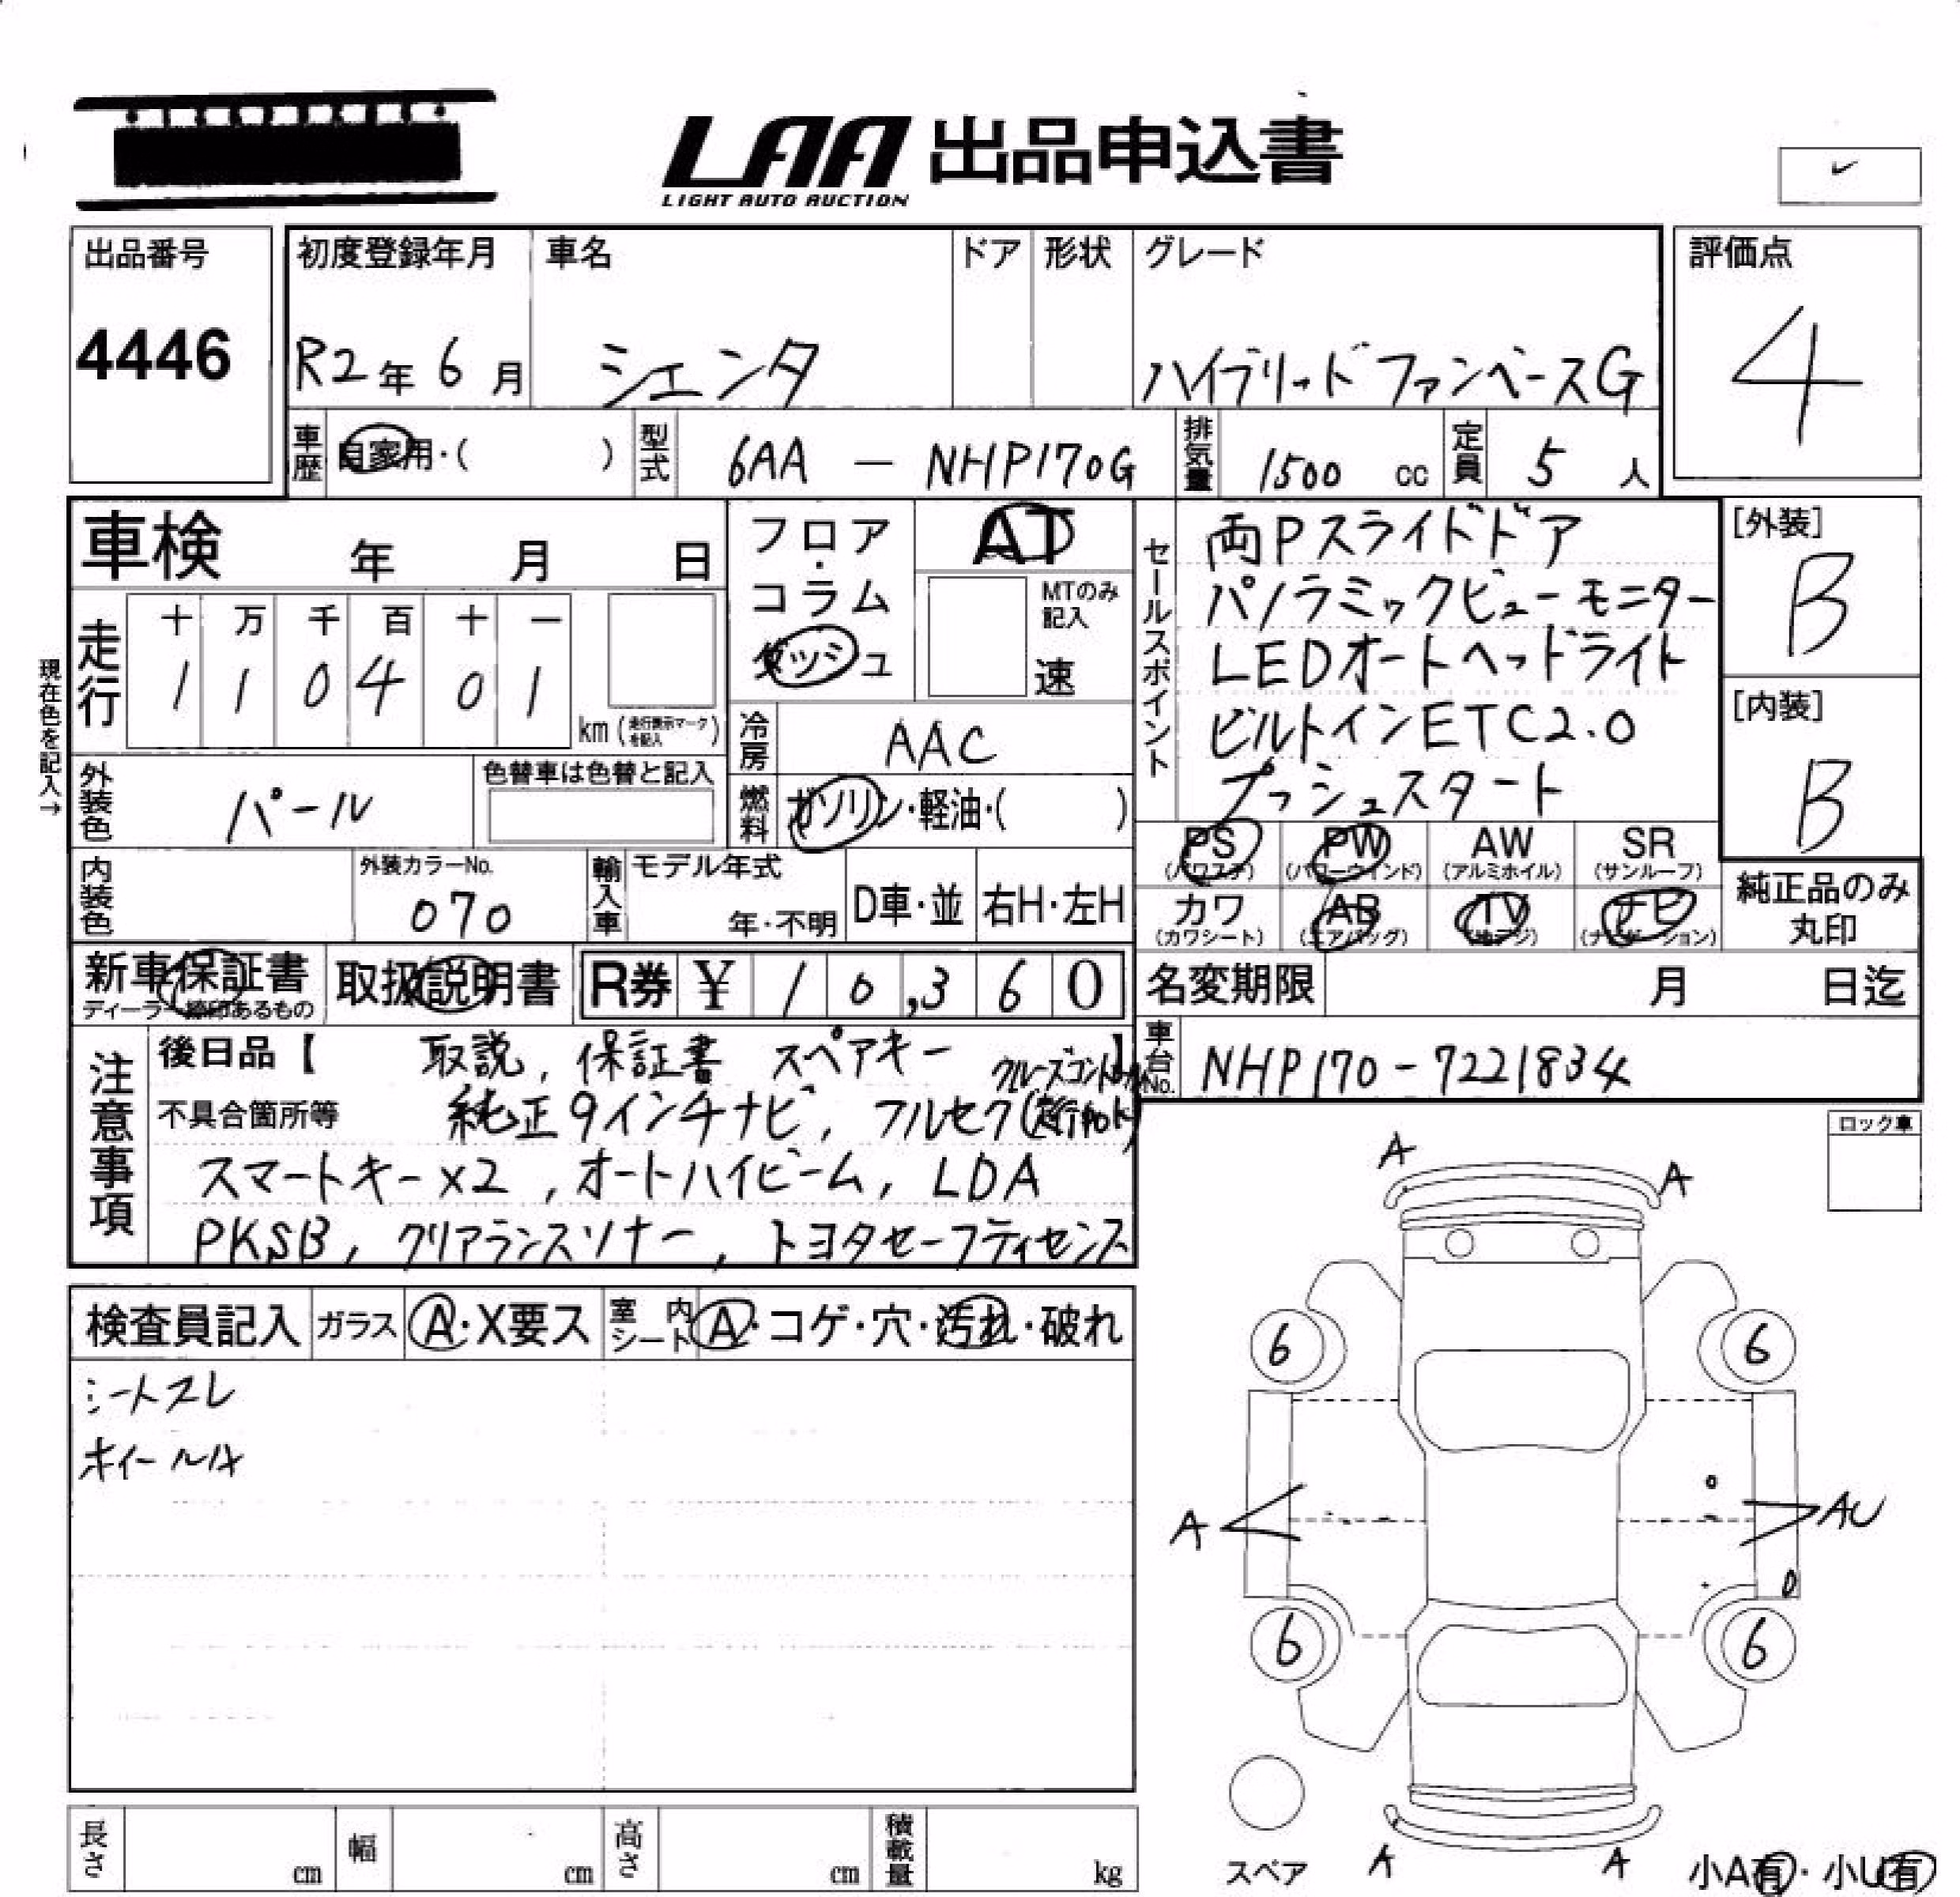 LAA 出品申込書
LIGHT AUTO AUCTION
出品番号
4446
初度登録年月
R2年 6月
車名
シエンタ
ドア
形状
グレード
ハイブリッドファンベースG
評価点
4
車歴
自家用・( )
型式
6AA - NHP170G
排気量
1500 cc
定員
5 人
車検 年 月 日
フロア・コラム
ダッシュ
AT
MTのみ記入
速
走行
十 万 千 百 十 一
1 1 0 4 0 1
km (走行表示マークを記入)
現在色を記入→
冷房
AAC
外装色
パール
色替車は色替と記入
燃料
ガソリン・軽油・( )
内装色
外装カラーNo.
070
輸入車
モデル年式
年・不明
D車・並
右H・左H
セールスポイント
両Pスライドドア
パノラミックビューモニター
LEDオートヘッドライト
ビルトインETC2.0
プッシュスタート
[外装]
B
[内装]
B
PS (パワステ)
PW (パワーウィンド)
AW (アルミホイル)
SR (サンルーフ)
カワ (カワシート)
AB (エアバッグ)
TV (地デジ)
ナビ (ナビゲーション)
純正品のみ丸印
新車保証書
ディーラー捺印あるもの
取扱説明書
R券 ¥ 10,360
名変期限 月 日迄
車台No.
NHP170-7221834
注意事項
後日品【 取説, 保証書 スペアキー 】
クルーズコントロール
不具合箇所等 純正9インチナビ, フルセグ
スマートキー×2, オートハイビーム, LDA
PKSB, クリアランスソナー, トヨタセーフティセンス
ロック車
検査員記入
ガラス A・X要ス
室内シート A・コゲ・穴・汚れ・破れ
シートスレ
ホイールA
A
A
6
6
A
AU
6
6
A
A
スペア
小A有・小U有
長さ cm
幅 cm
高さ cm
積載量 kg